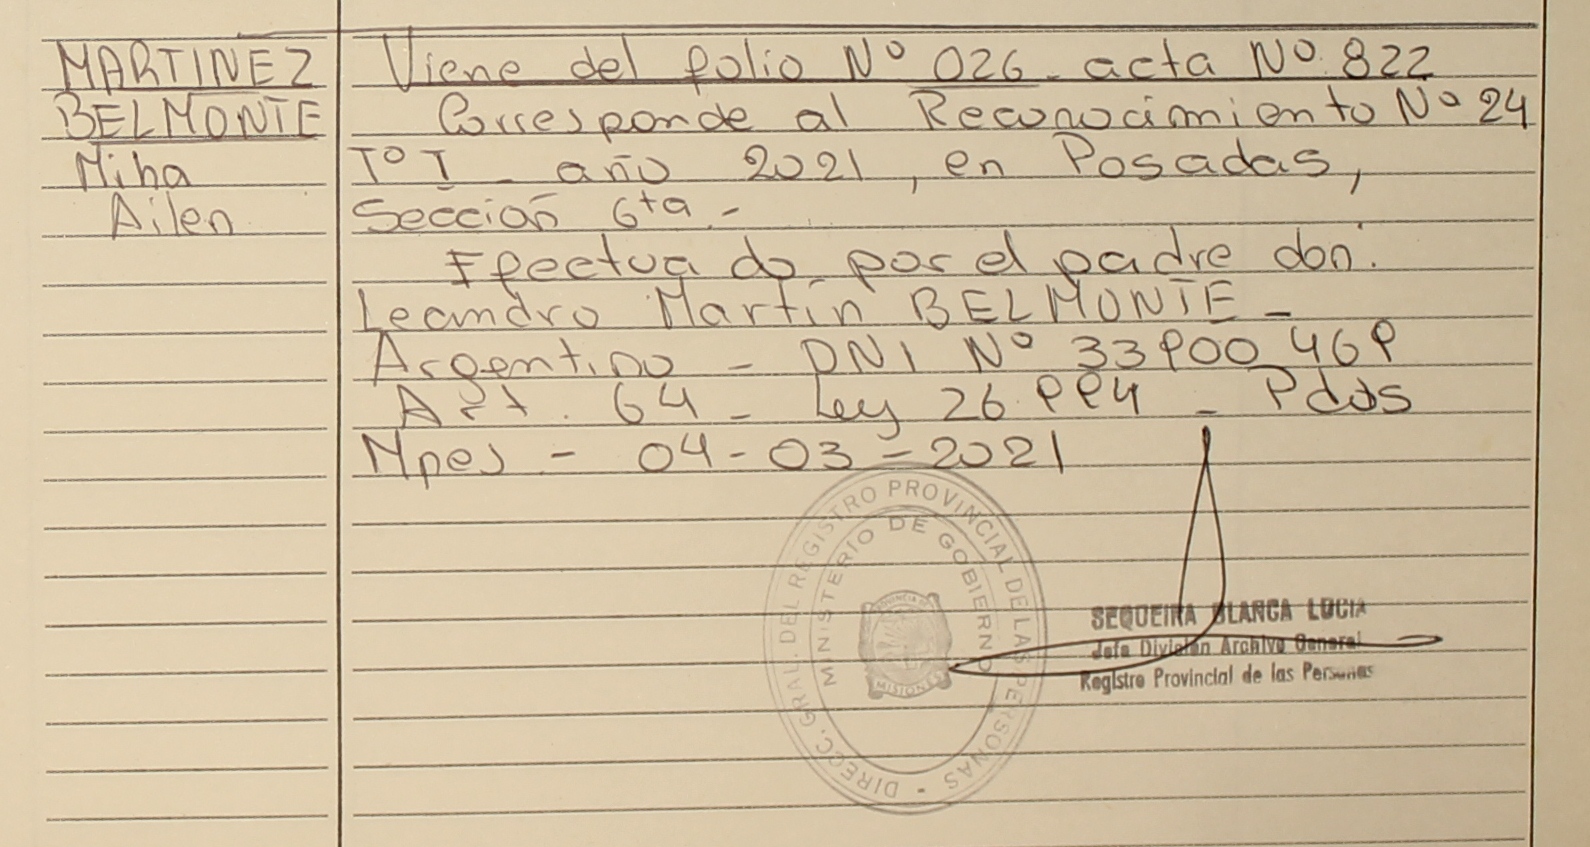 MARTINEZ
BELMONTE
Miha
Ailen
Viene del folio Nº 026 - acta Nº 822
Corresponde al Reconocimiento Nº 24
Tº I - año 2021, en Posadas,
Sección 6ta -
Efectuado por el padre don:
Leandro Martín BELMONTE -
Argentino - DNI Nº 33900469
Art. 64 - Ley 26.994 - Pdas
Mnes - 04-03-2021
DIRECC. GRAL. DEL REGISTRO PROVINCIAL DE LAS PERSONAS
MINISTERIO DE GOBIERNO
PROVINCIA DE
MISIONES
SEQUEIRA BLANCA LUCIA
Jefa División Archivo General
Registro Provincial de las Personas